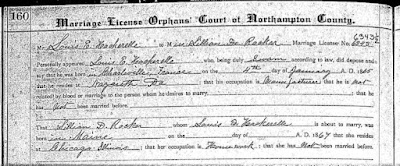 160
Marriage License Orphans' Court of Northampton County.
6343½
Mr. Louis E. Frockerelle to Miss Lillian De Raaker Marriage License No.
Personally appeared Louis E. who, being duly sworn according to law, did depose and
say that he was born in France on the 4th day of January A. D. 1865
that he resides at Nazareth Pa that his occupation is Manufacturer that he is not
related by blood or marriage to the person whom he desires to marry, and that he has
not been married before.
That Lillian D. Raaker whom Louis D. is about to marry, was
born in Maine on the day of A. D. 1867 that she resides
at Chicago Illinois that her occupation is Housework; that she has Not been married before.